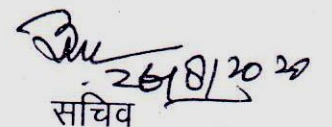 26/8/2020
सचिव